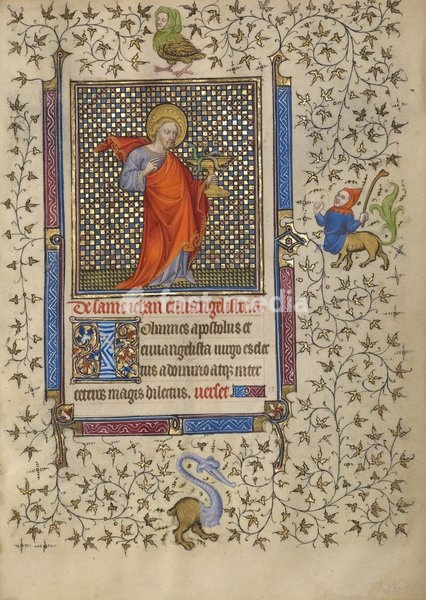 De saint iehan euuangeliste.
Iohannes apostolus et
euuangelista uirgo es elec
tus a domino atq; inter
ceteros magis dilectus. Verset